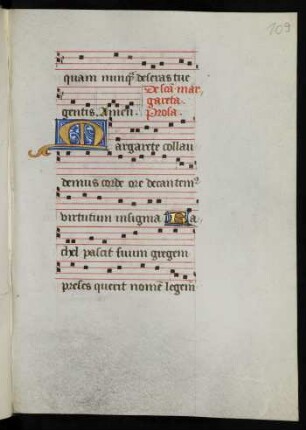 109
quam nunq̄ deseras tue
gentis. Amen.
De scā mar
gareta.
Prosa.
Margarete collau
demus corde ore decantemꝰ
virtutum insignia Ra
chel pascit suum gregem
preses querit nomē legem